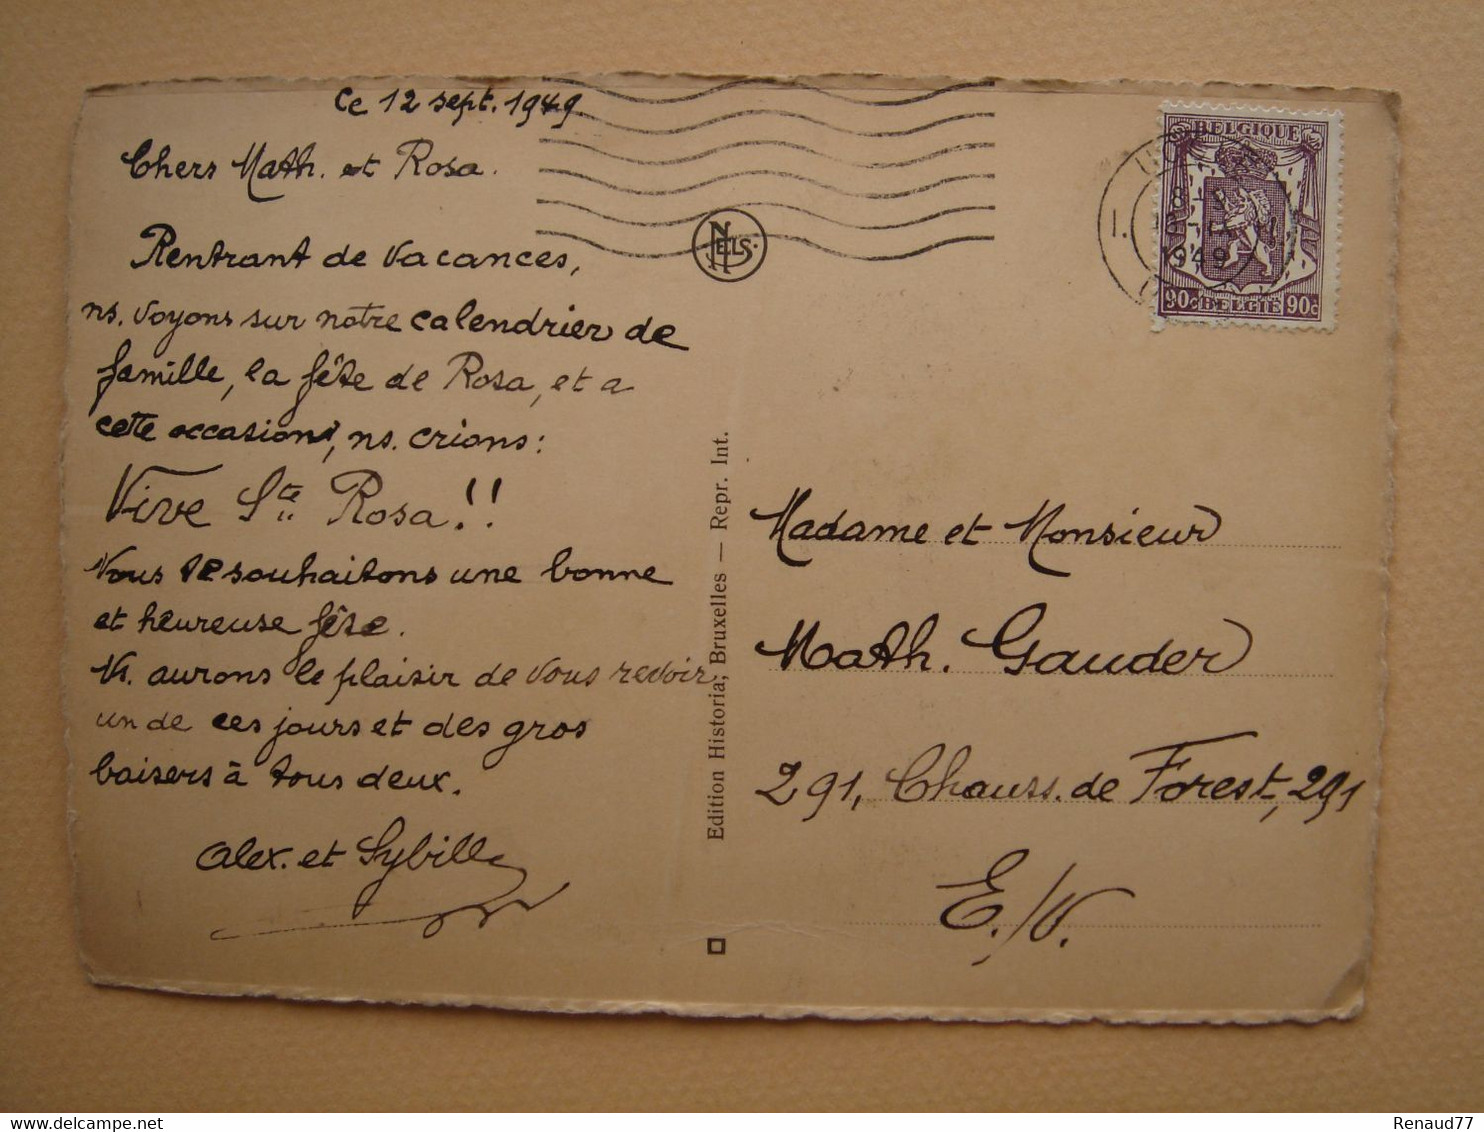 Ce 12 sept. 1949
Chers Math. et Rosa.
Rentrant de Vacances,
ns. voyons sur notre calendrier de
famille, la fête de Rosa, et a
cette occasion, ns. crions:
Vive Ste Rosa!!
Vous souhaitons une bonne
et heureuse fête.
Ns. aurons le plaisir de vous revoir
un de ces jours et des gros
baisers à tous deux.
Alex. et Sybille
NELS
Edition Historia, Bruxelles — Repr. Int.
BELGIQUE
1949
90c BELGIË 90c
Madame et Monsieur
Math. Gauder
291, Chauss. de Forest, 291
E./V.
delcampe.net
Renaud77